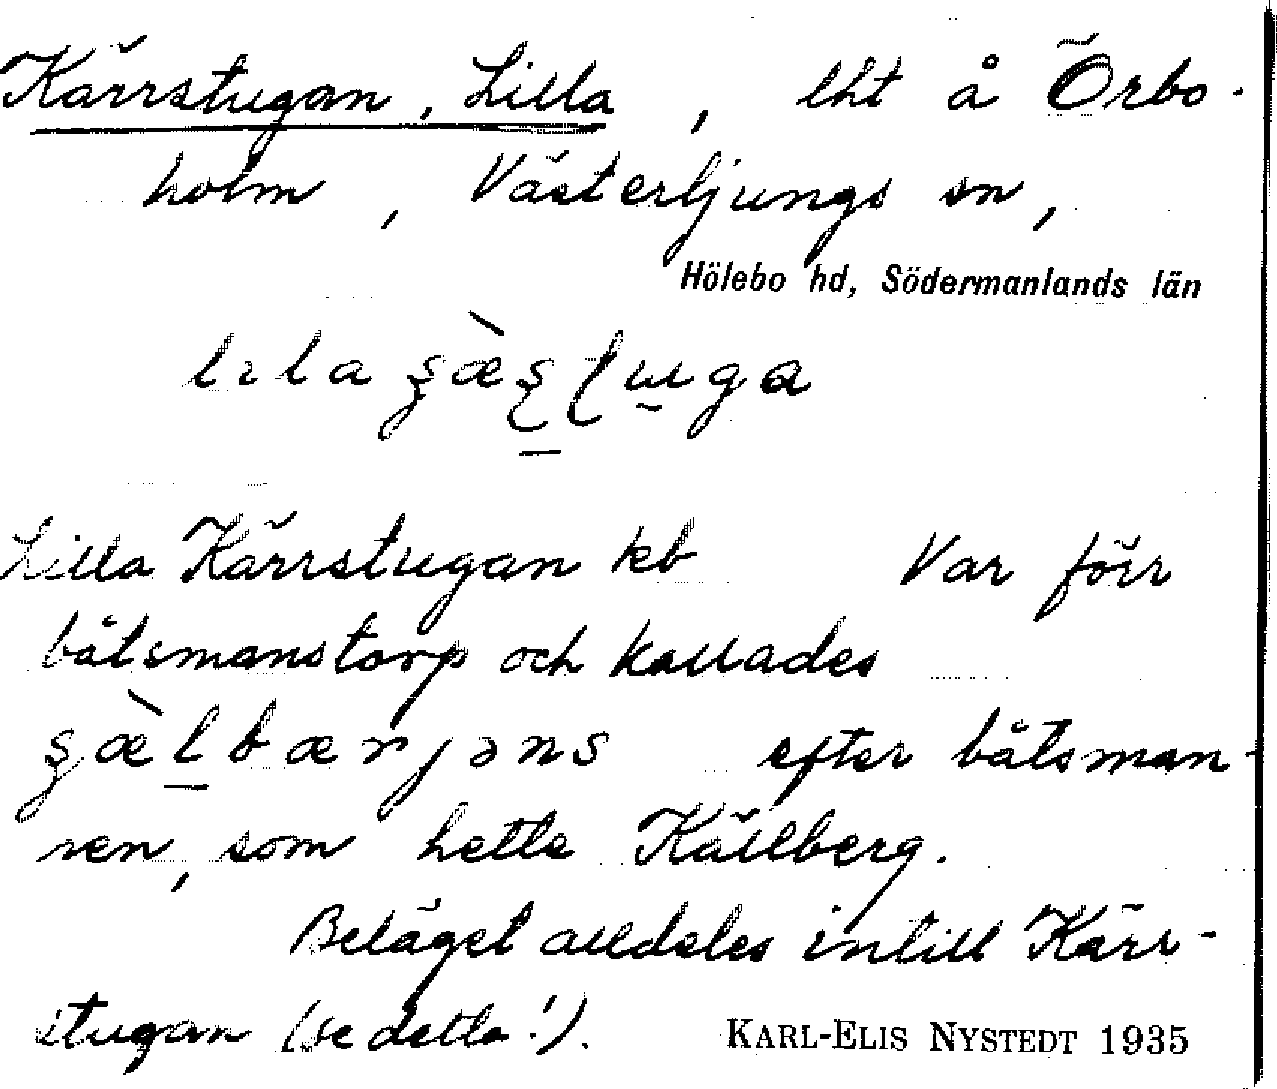 Kärrstugan, Lilla, lht å Örbo-
holm, Västerljungs sn,
Hölebo hd, Södermanlands län
Lilla Kärrstugan kb Var förr
båtsmanstorp och kallades
efter båtsman-
nen, som hette Källberg.
Beläget alldeles intill Kärr-
stugan (se detta!).
KARL-ELIS NYSTEDT 1935